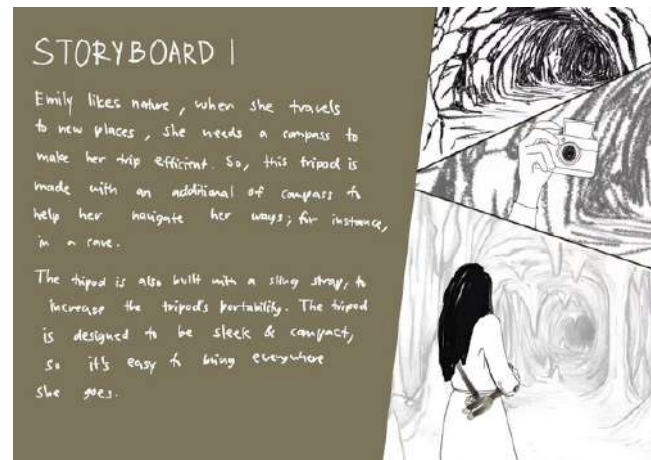 STORYBOARD 1
Emily likes nature, when she travels
to new places, she needs a compass to
make her trip efficient. So, this tripod is
made with an additional of compass to
help her navigate her ways; for instance,
in a cave.
The tripod is also built with a sling strap, to
increase the tripod's portability. The tripod
is designed to be sleek & compact,
so it's easy to bring everywhere
she goes.